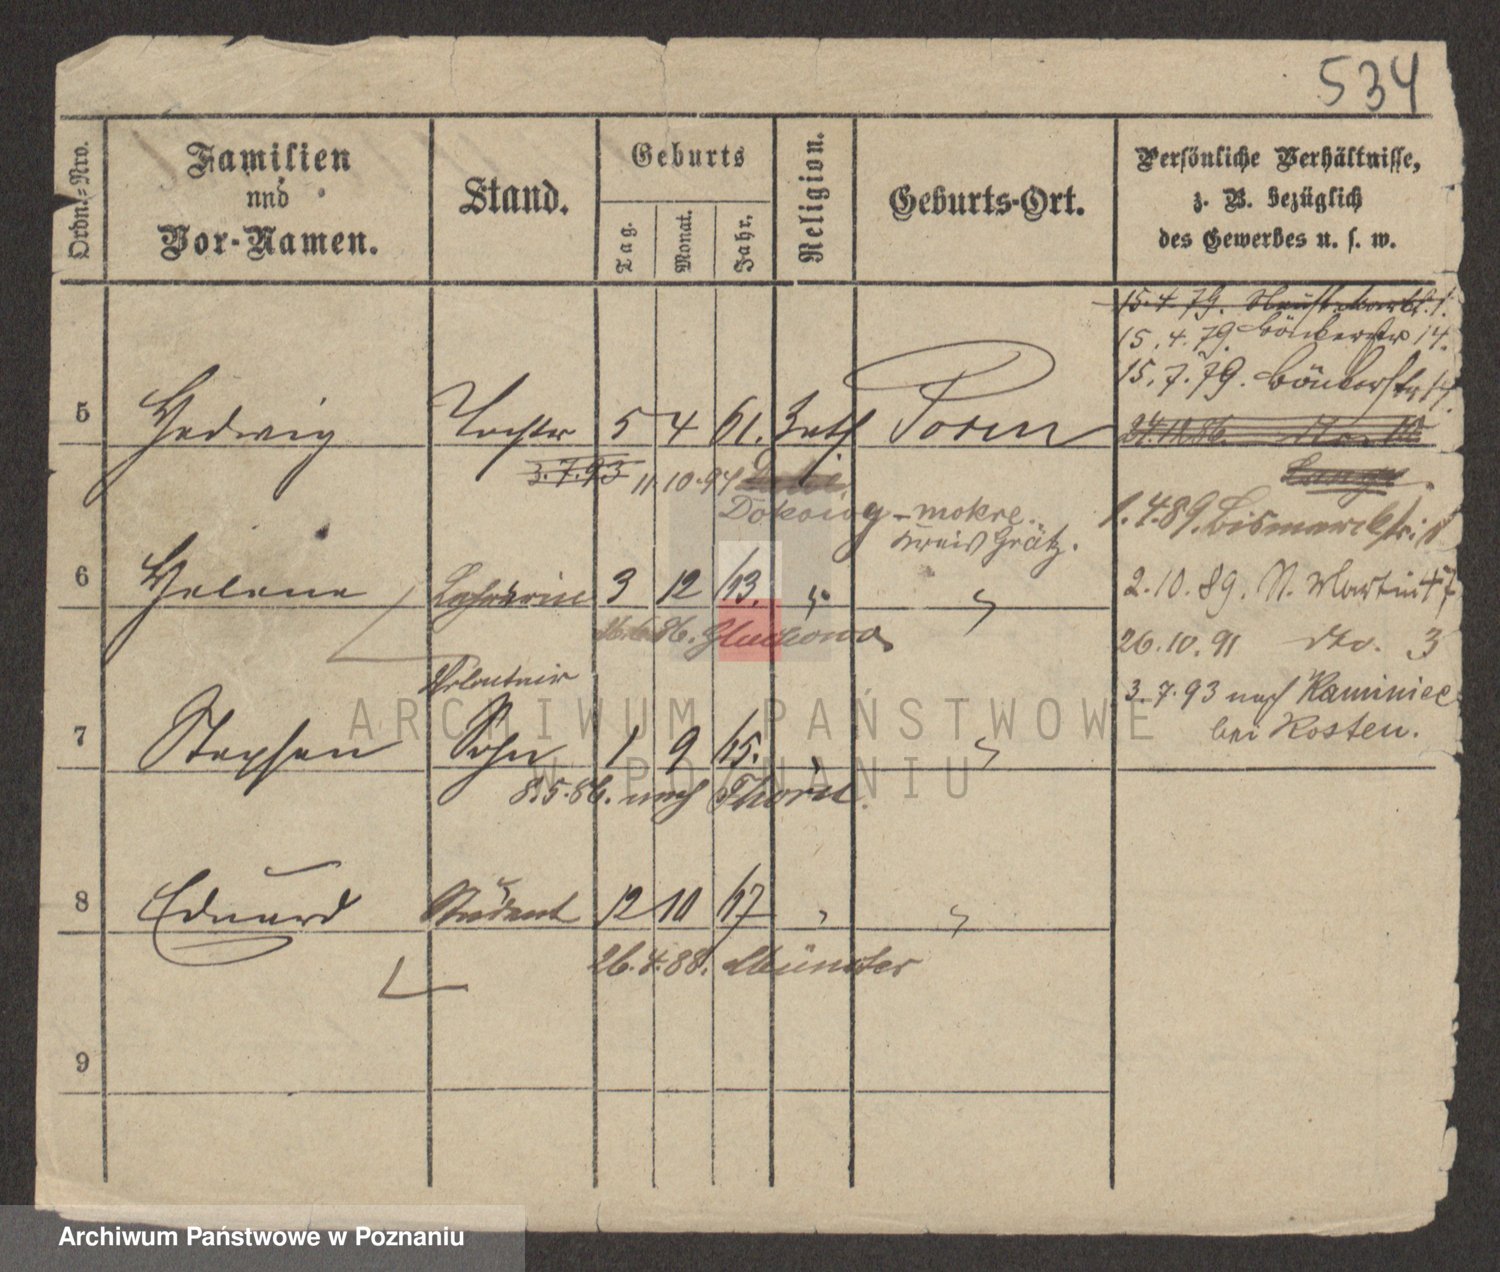 534
Ordn.-Nro.
Familien
und
Vor-Namen.
Stand.
Geburts
Tag.
Monat.
Jahr.
Religion.
Geburts-Ort.
Persönliche Verhältnisse,
z. B. bezüglich
des Gewerbes u. s. w.
15.4.79.
15.4.79. Bäckerstr 14.
15.7.79. Bäckerstr 17.
5 Hedwig Tochter 5 4 61. Kath Posen
24.10.86. No 10
3.7.93 11.10.94
Dokowy-mokre
Kreis Grätz.
1.4.89. Bismarckstr.
6 Helene Lehrerin 3 12 63. " "
2.10.89. St. Martin 47
26.6.86. Gluchowo
26.10.91 dto. 3
Volontair
3.7.93 nach Kaminiec
bei Kosten.
7 Stephan Sohn 1 9 65. " "
8.5.86. nach Thorn.
8 Eduard Student 12 10 67 " "
26.4.88. Münster
9
ARCHIWUM PAŃSTWOWE
W POZNANIU
Archiwum Państwowe w Poznaniu